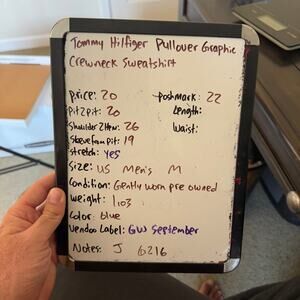 Tommy Hilfiger Pullover Graphic
Crewneck Sweatshirt
price: 20 poshmark: 22
pit2pit: 20 Length:
Shoulder2Hem: 26 Waist:
Sleeve from pit: 19
stretch: yes
Size: US Men's M
Condition: Gently worn pre owned
weight: 1.03
Color: blue
Vendoo Label: GW September
Notes: J 6216